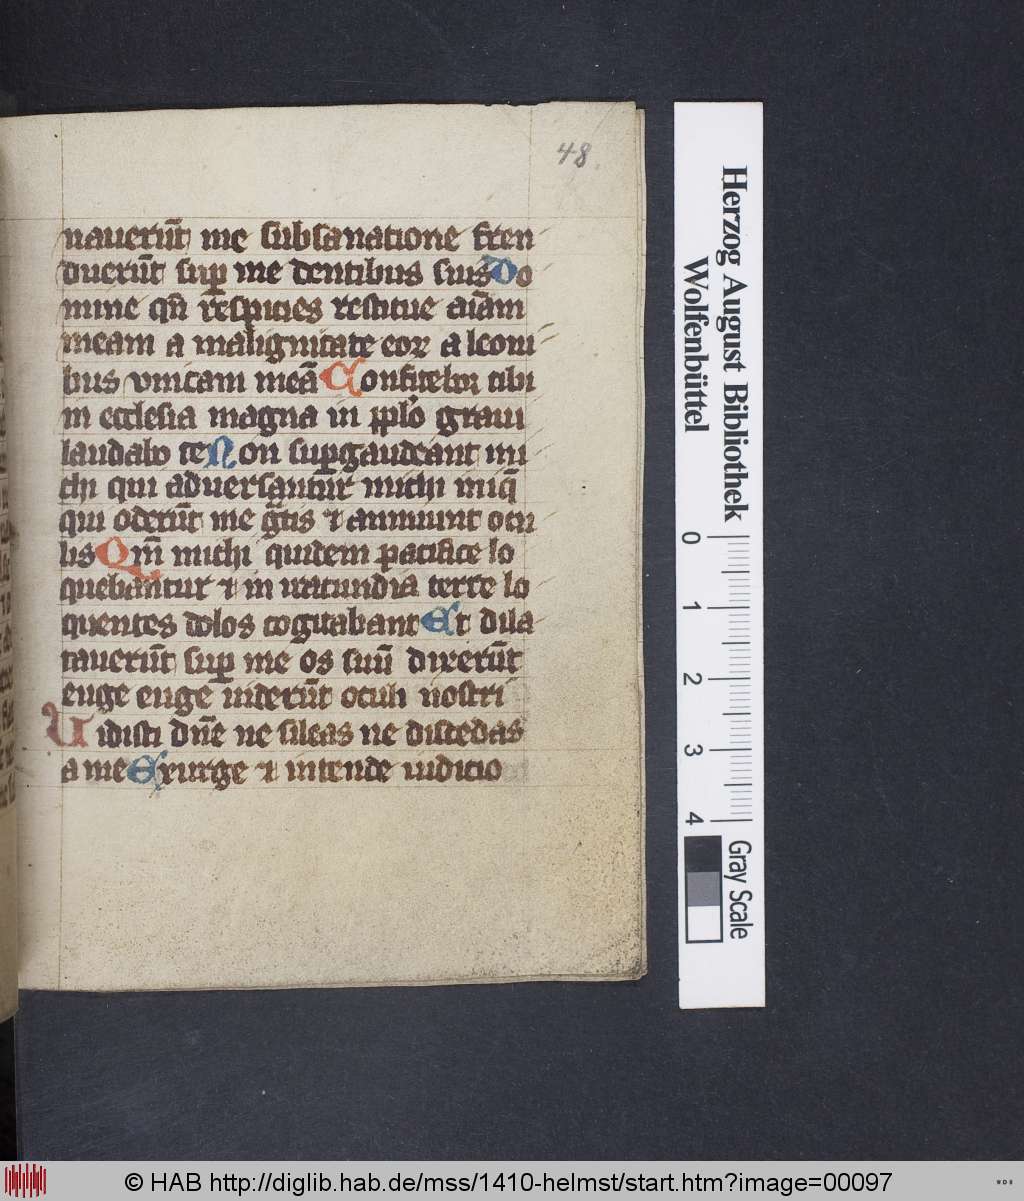 48.
nauerūt me subsanatione fren
duerūt suꝑ me dentibus suis Do
mine qn̄ respicies restitue aīam
meam a malignitate eoꝝ a leoni
bus vnicam meā Confitebor tibi
in ecclesia magna in pplo graui
laudabo te Non suꝑgaudeant mi
chi qui aduersantur michi iniq̄
qui oderūt me gͣtis ⁊ annuunt ocu
lis Qm̄ michi quidem pacifice lo
quebantur ⁊ in iracundia terre lo
quentes dolos cogitabant Et dila
tauerūt suꝑ me os suū dixerūt
euge euge uiderūt oculi nostri
Uidisti dn̄e ne sileas ne discedas
a me Exurge ⁊ intende iudicio
Herzog August Bibliothek
Wolfenbüttel
0 1 2 3 4
Gray Scale
© HAB http://diglib.hab.de/mss/1410-helmst/start.htm?image=00097